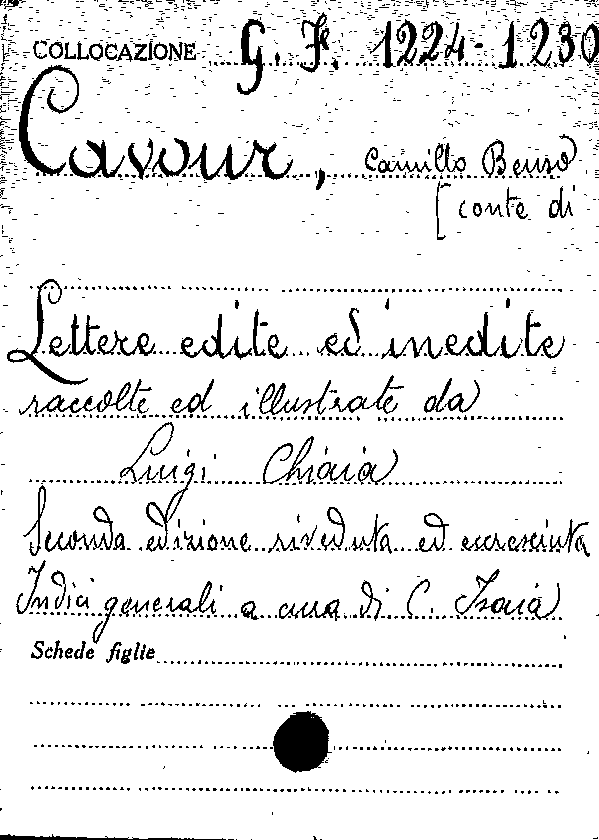 COLLOCAZIONE G. F. 1224-1230
Cavour, Camillo Benso
[conte di
Lettere edite ed inedite
raccolte ed illustrate da
Luigi Chiaia
Seconda edizione riveduta ed accresciuta
Indici generali a cura di C. Isaia
Schede figlie